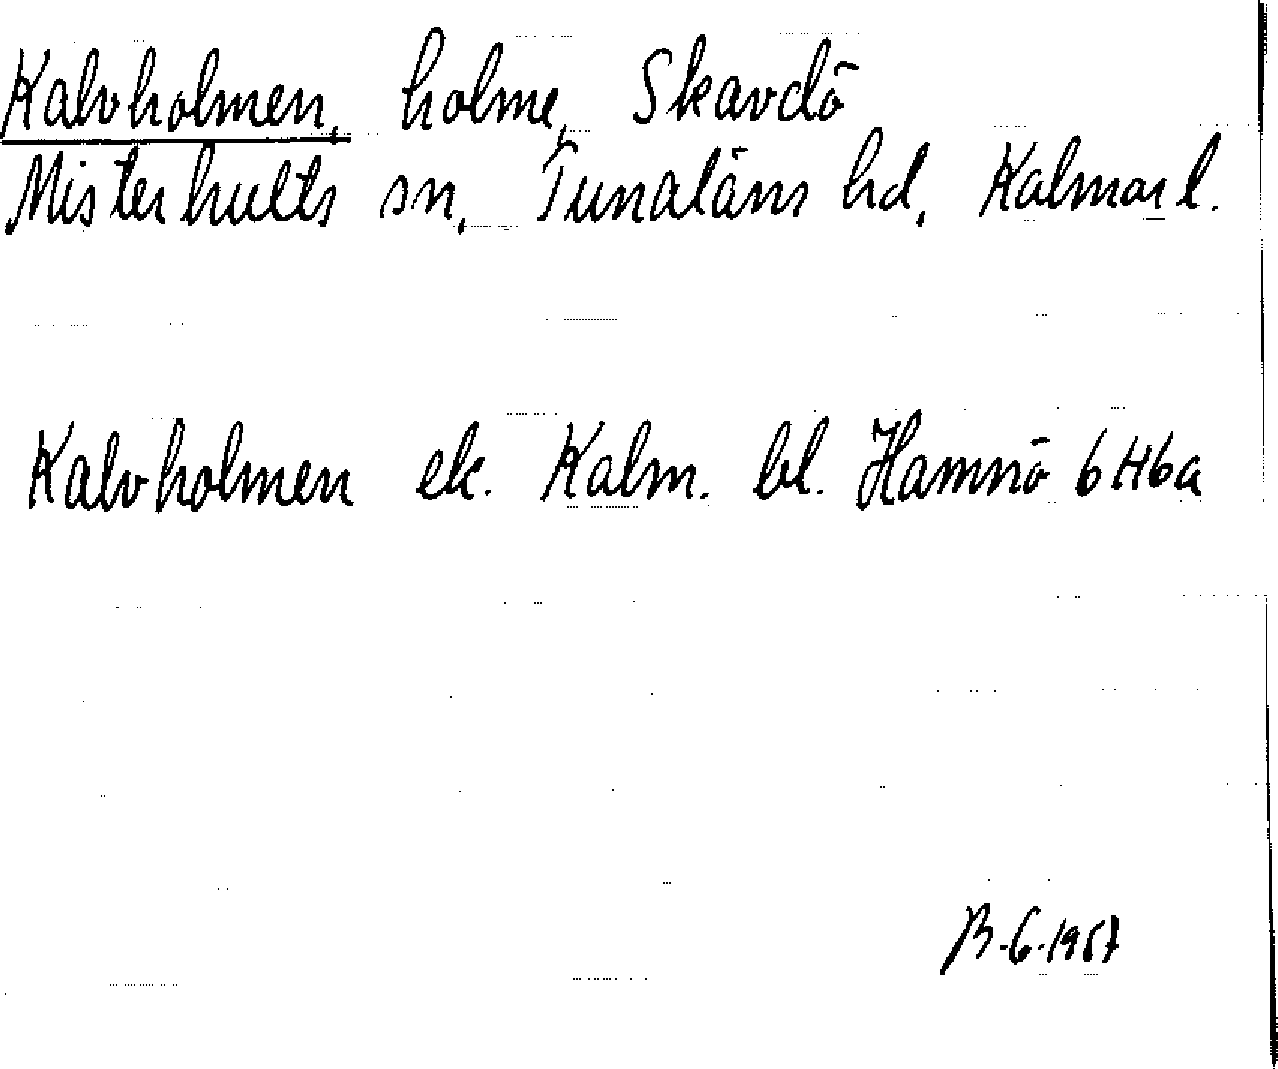 Kalvholmen, holme, Skavdö
Misterhults sn, Tunaläns hd, Kalmar l.
Kalvholmen ek. Kalm. bl. Hamnö 6H6a
B-G-1957